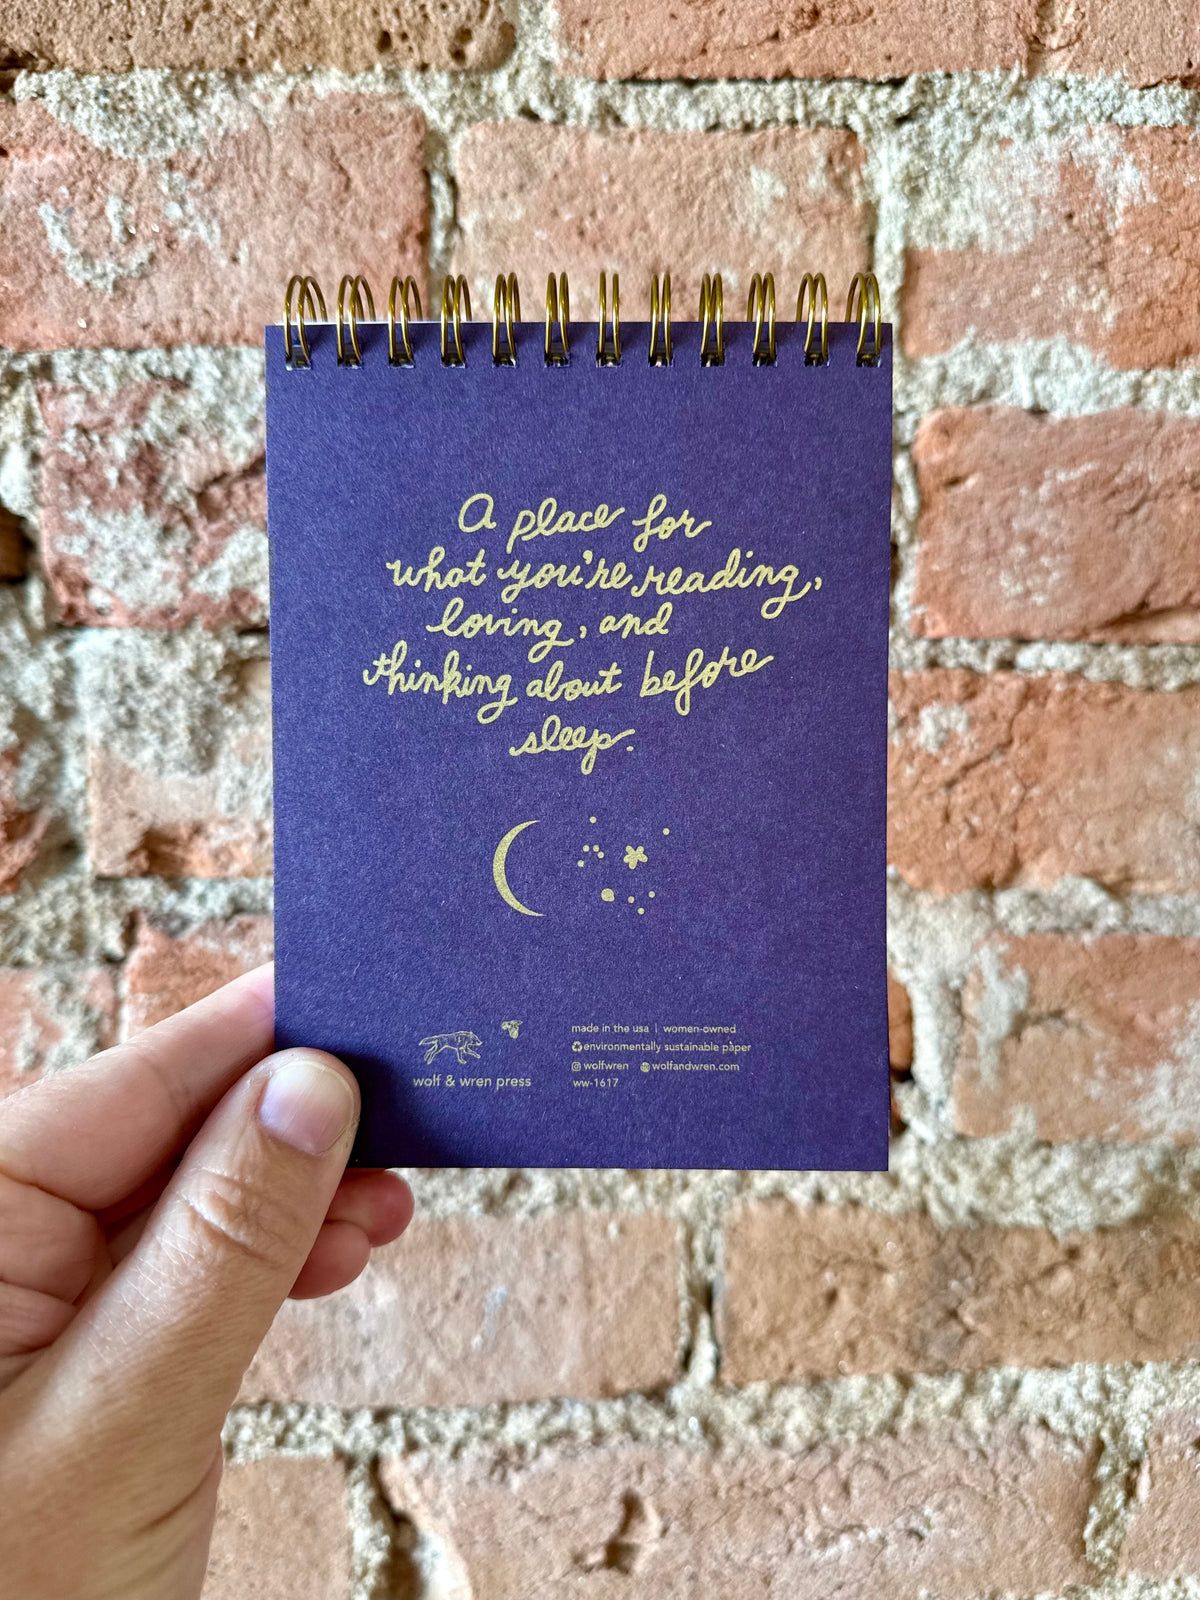 A place for
what you're reading,
loving, and
thinking about before
sleep.
wolf & wren press
made in the usa | women-owned
environmentally sustainable paper
wolfwren wolfandwren.com
ww-1617